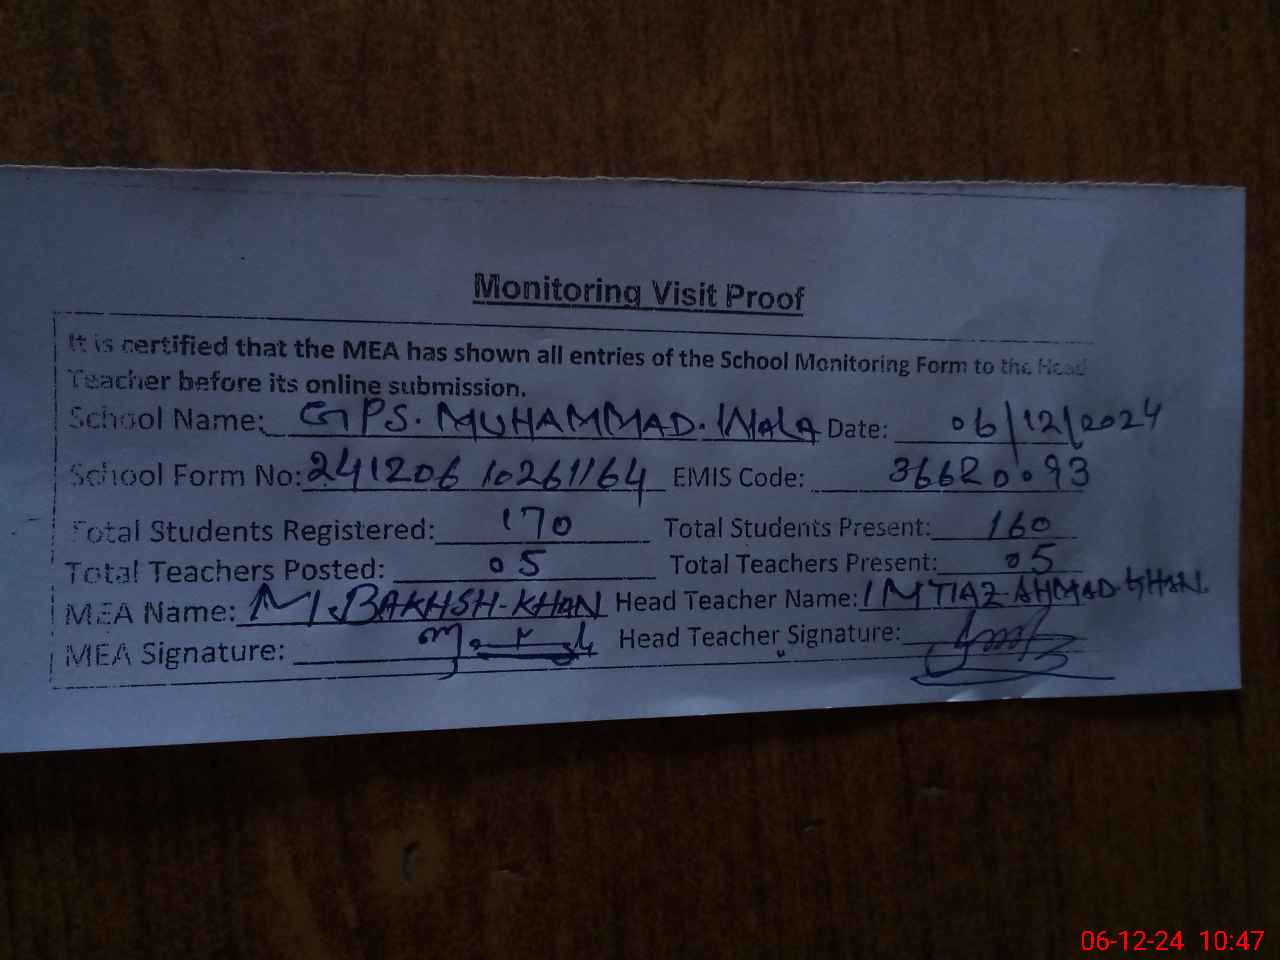 Monitoring Visit Proof
It is certified that the MEA has shown all entries of the School Monitoring Form to the Head
Teacher before its online submission.
School Name: GPS. MUHAMMAD. WALA Date: 06/12/2024
School Form No: 241206 10261164 EMIS Code: 36620093
Total Students Registered: 170 Total Students Present: 160
Total Teachers Posted: 05 Total Teachers Present: 05
MEA Name: M. BAKHSH-KHAN Head Teacher Name: IMTIAZ-AHMAD-KHAN.
MEA Signature: Head Teacher Signature:
06-12-24 10:47